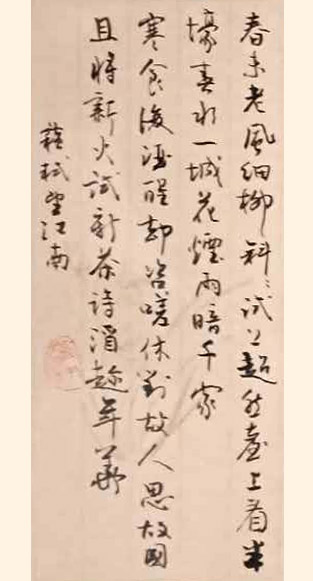 春未老風細柳斜〻試上超然臺上看半
壕春水一城花煙雨暗千家
寒食後酒醒卻咨嗟休對故人思故國
且將新火試新茶詩酒趁年華
蘇軾望江南